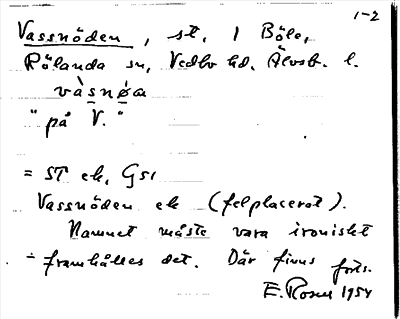 1-2
Vassnöden, st, 1 Böle,
Rölanda sn, Vedbo hd. Älvsb. l.
vàsnǿa
"på V."
= ST ek, GS1
Vassnöden ek (felplacerat).
Namnet måste vara ironiskt
-framhålles det. Där finns forts.
E. Rosen 1954